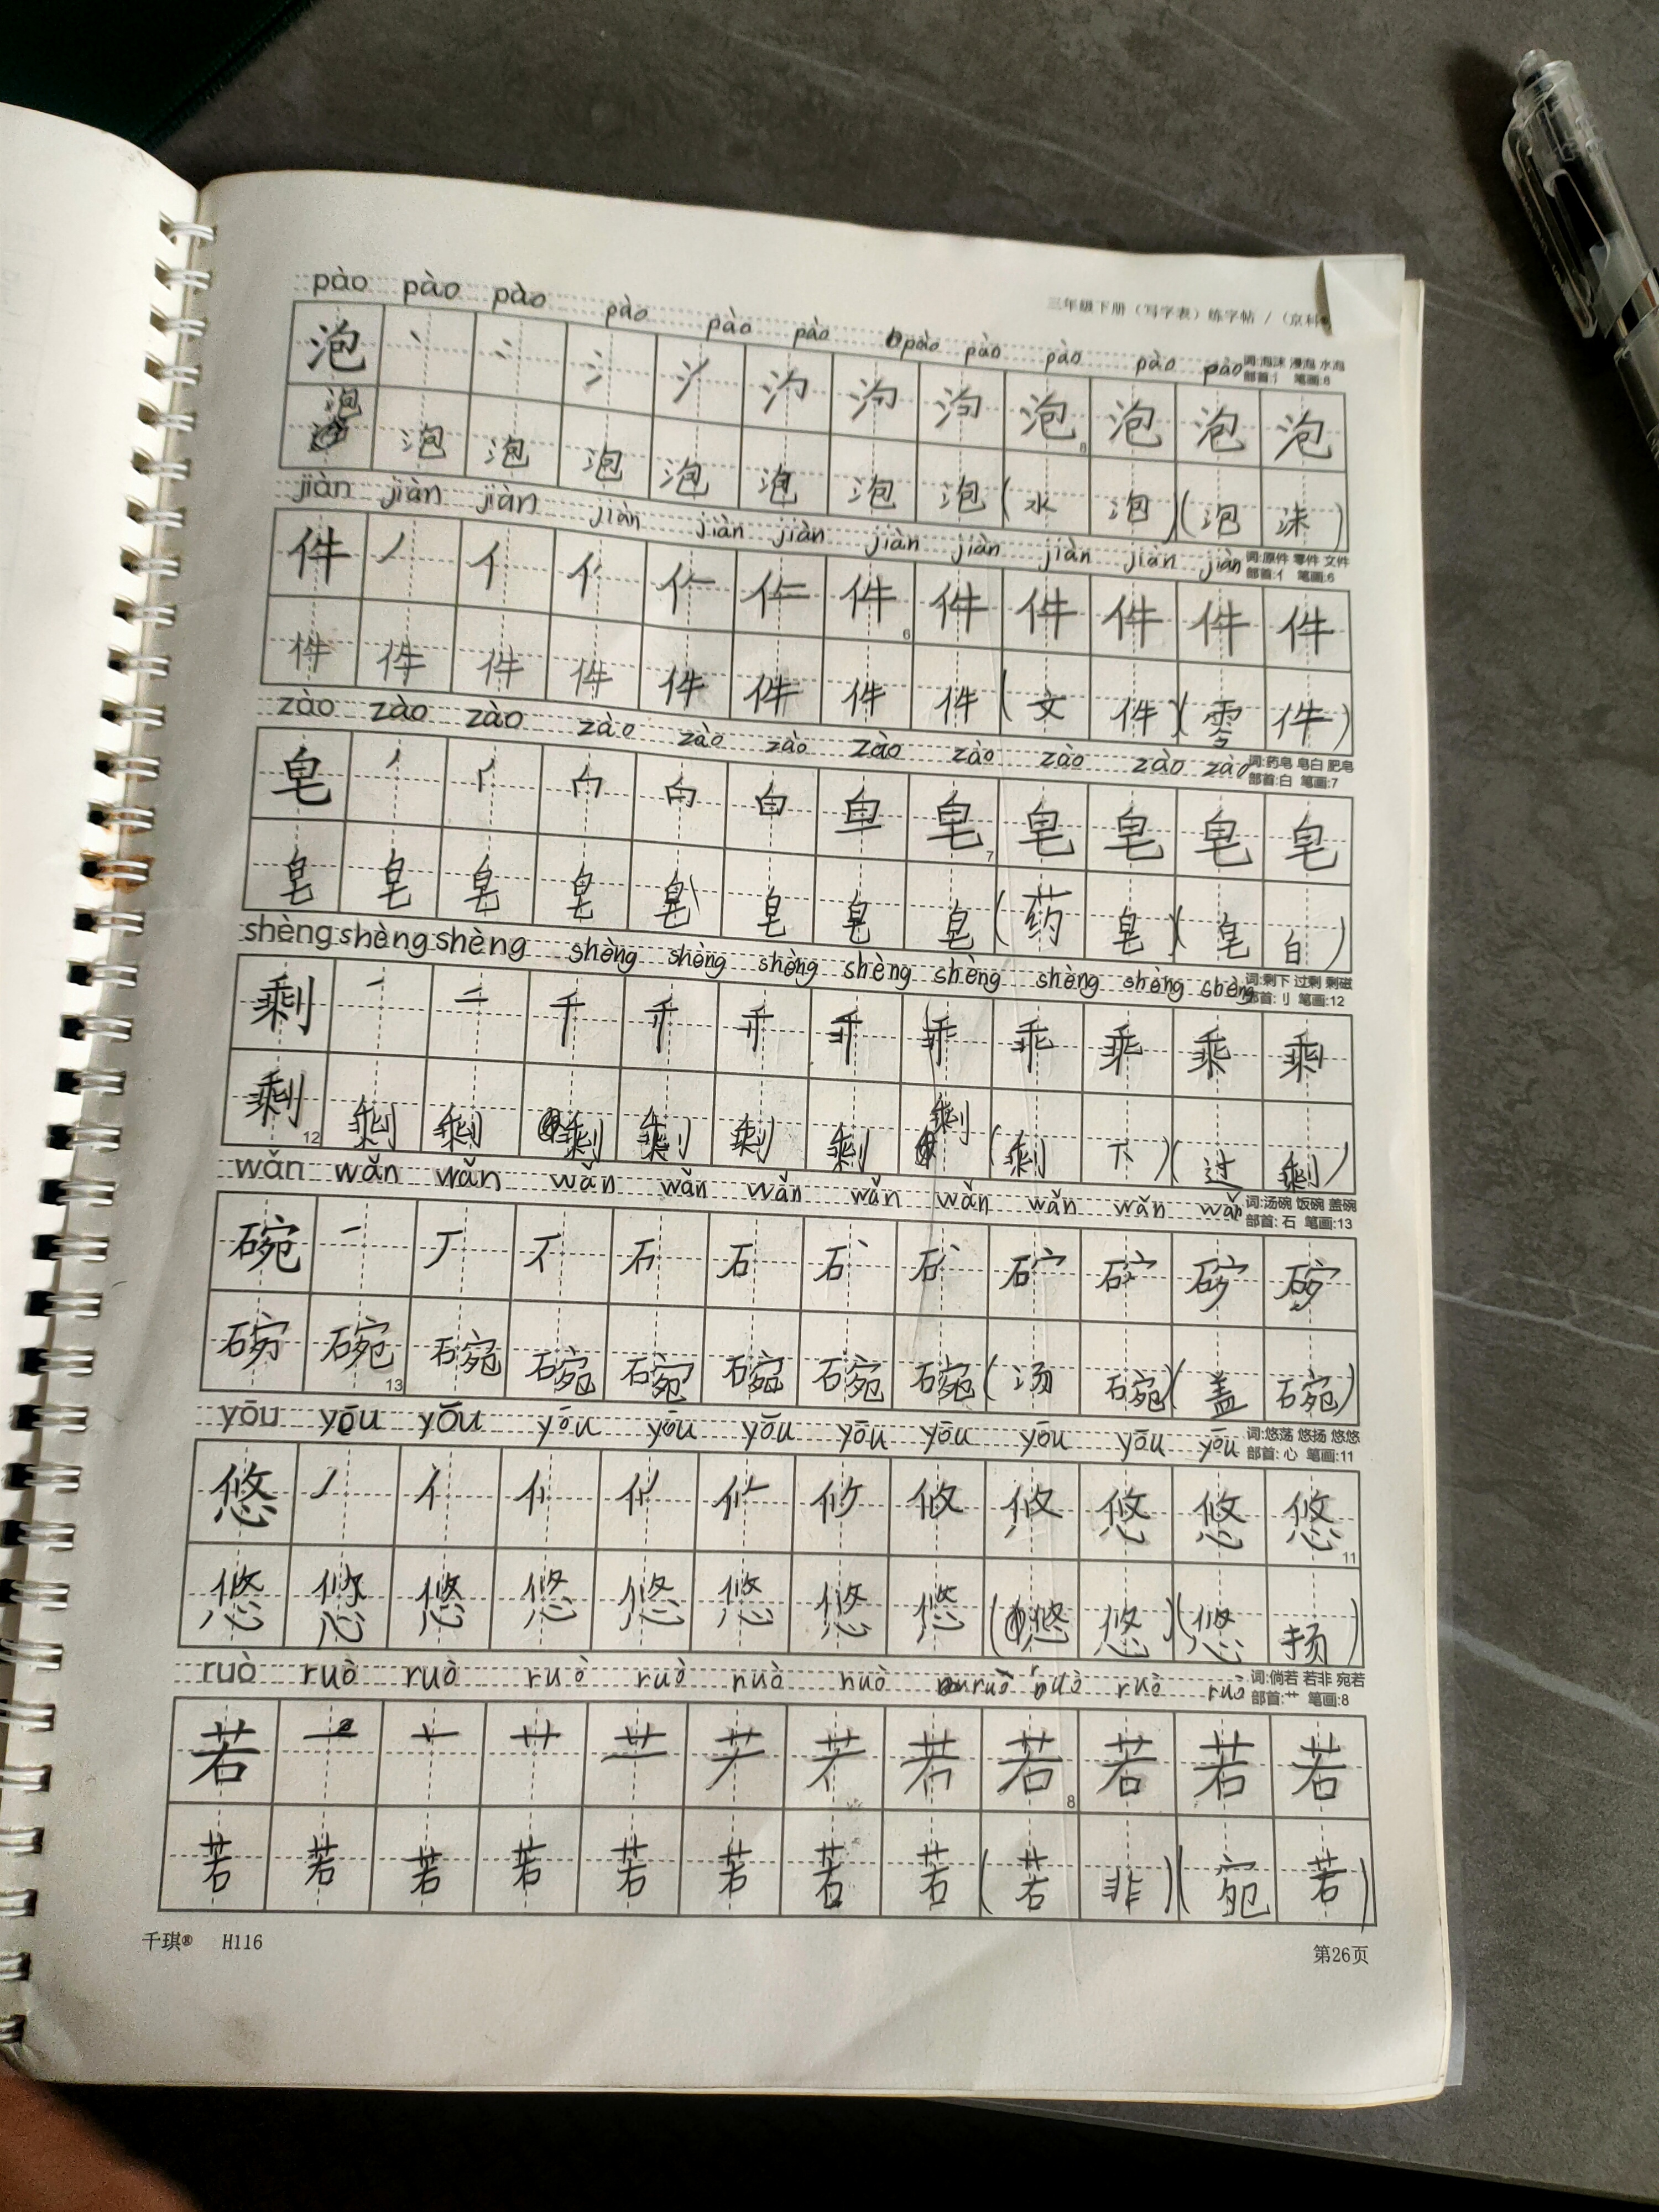 三年级下册（写字表）练字帖 /（京科
pào pào pào pào pào pào pào pào pào pào pào
词:泡沫 漫泡 水泡
部首:氵 笔画:8
泡 丶 氵 泡 8 泡 泡 泡
泡 泡 泡 泡 泡 泡 泡 泡 (水泡)(泡沫)
jiàn jiàn jiàn jiàn jiàn jiàn jiàn jiàn jiàn jiàn jiàn
词:原件 零件 文件
部首:亻 笔画:6
件 丿 亻 件 6 件 件 件 件 件
件 件 件 件 件 件 件 件 (文件)(零件)
zào zào zào zào zào zào zào zào zào zào zào
词:药皂 皂白 肥皂
部首:白 笔画:7
皂 丿 白 皂 7 皂 皂 皂 皂
皂 皂 皂 皂 皂 皂 皂 皂 (药皂)(皂白)
shèng shèng shèng shèng shèng shèng shèng shèng shèng shèng shèng
词:剩下 过剩 剩磁
部首:刂 笔画:12
剩 一 二 千 乖 乘
剩 12 剩 剩 剩 剩 剩 剩 剩 (剩下)(过剩)
wǎn wǎn wǎn wǎn wǎn wǎn wǎn wǎn wǎn wǎn wǎn
词:汤碗 饭碗 盖碗
部首:石 笔画:13
碗 一 丆 石
碗 13 碗 碗 碗 碗 碗 碗 (汤碗)(盖碗)
yōu yōu yōu yōu yōu yōu yōu yōu yōu yōu yōu
词:悠荡 悠扬 悠悠
部首:心 笔画:11
悠 丿 亻 攸 悠 11
悠 悠 悠 悠 悠 悠 悠 悠 (悠悠)(悠扬)
ruò ruò ruò ruò ruò nuò nuò ruò ruò ruò ruò
词:倘若 若非 宛若
部首:艹 笔画:8
若 一 艹 若 8 若 若 若
若 若 若 若 若 若 若 若 (若非)(宛若)
千琪® H116
第26页